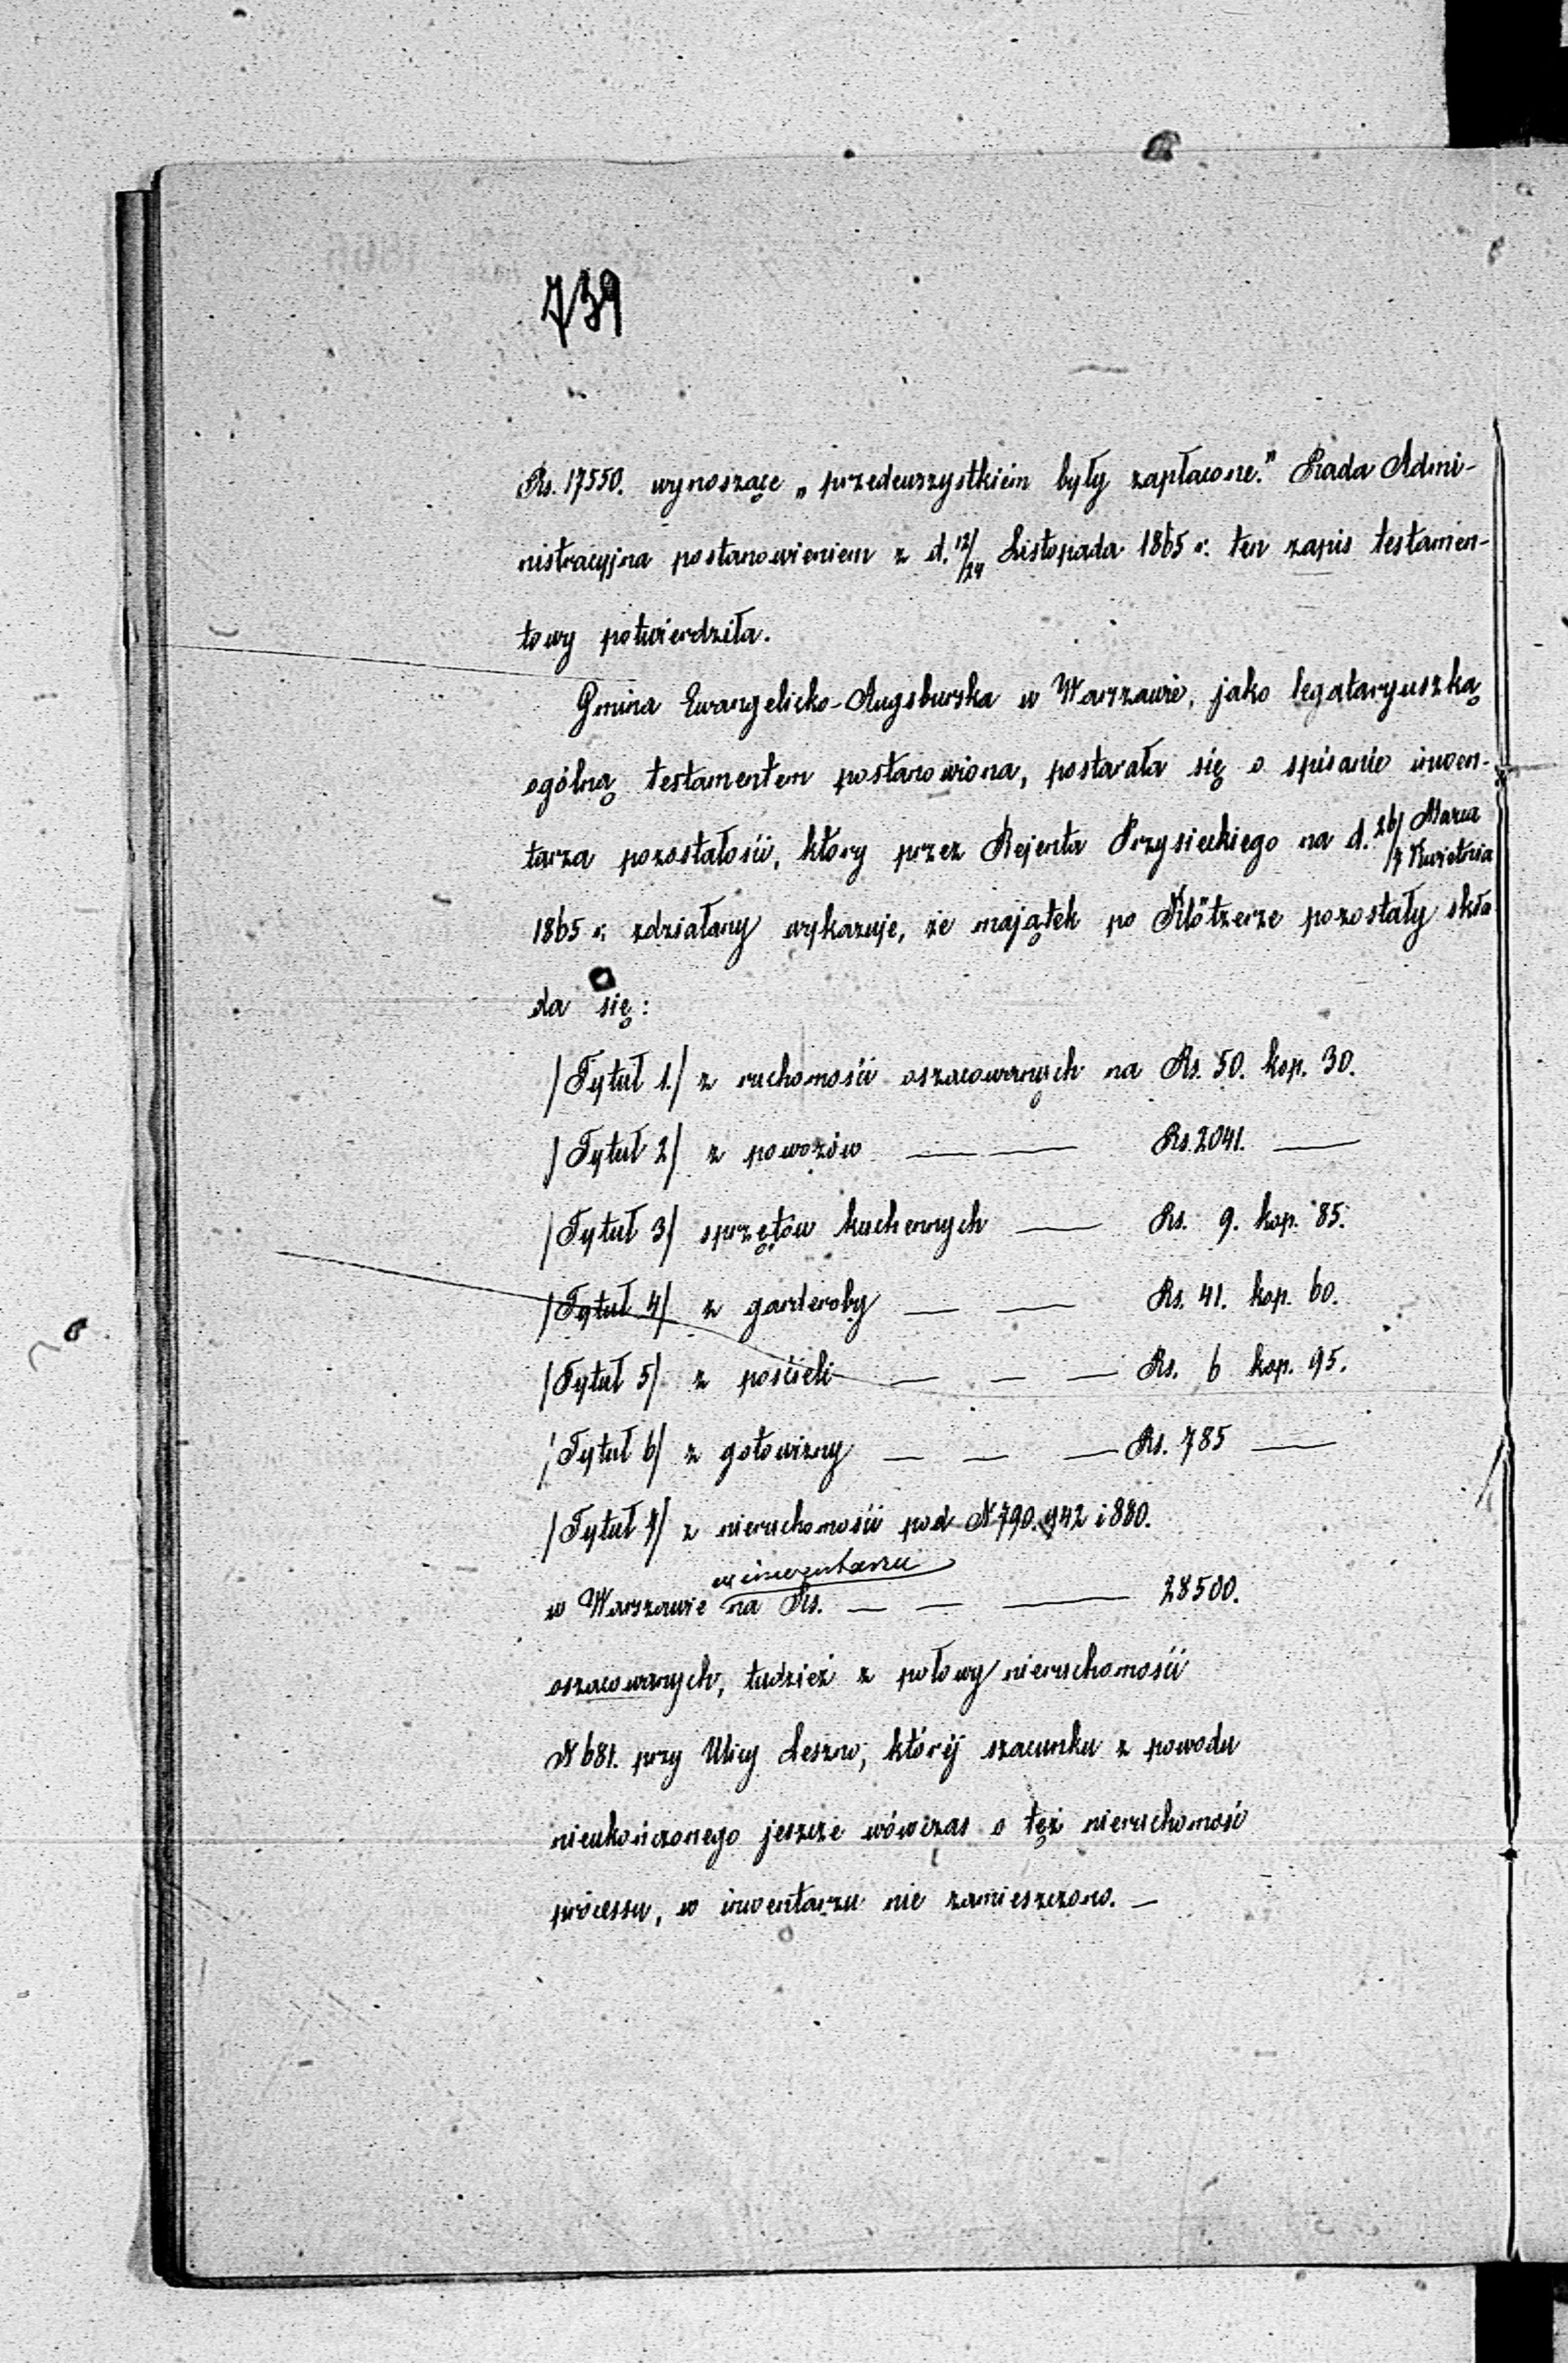 739
Rs. 17550. wynoszące „przedewszystkiém były zapłacone." Rada Admi-
nistracyjna postanowieniem z d. 12/24 Listopada 1865 r. ten zapis testamen-
towy potwierdziła.
Gmina Ewangelicko-Augsburska w Warszawie, jako legataryuszką
ogólną testamentem postanowiona, postarała się o spisanie inwen-
tarza pozostałości, który przez Rejenta Przysieckiego na d. 26/7 Marca Kwietnia
1865 r. zdziałany wykazuje, że majątek po Klötzerze pozostały skła
da się:
/Tytuł 1./ z ruchomości oszacowanych na Rs. 50. kop. 30.
/Tytuł 2/ z powozów — — Rs. 2041. —
/Tytuł 3/ sprzętów kuchennych — Rs. 9. kop. 85.
/Tytuł 4/ z garderoby — — Rs. 41. kop. 60.
/Tytuł 5/ z pościeli — — — Rs. 6 kop. 95.
/Tytuł 6/ z gotowizny — — — Rs. 785 —
/Tytuł 7/ z nieruchomości pod N 790. 942 i 880.
w inwentarzu
w Warszawie na Rs. — — — 28500.
oszacowanych, tudzież z połowy nieruchomości
N 681. przy Ulicy Leszno, któréj szacunku z powodu
nieukończonego jeszcze wówczas o tęż nieruchomość
processu, w inwentarzu nie zamieszczono. —